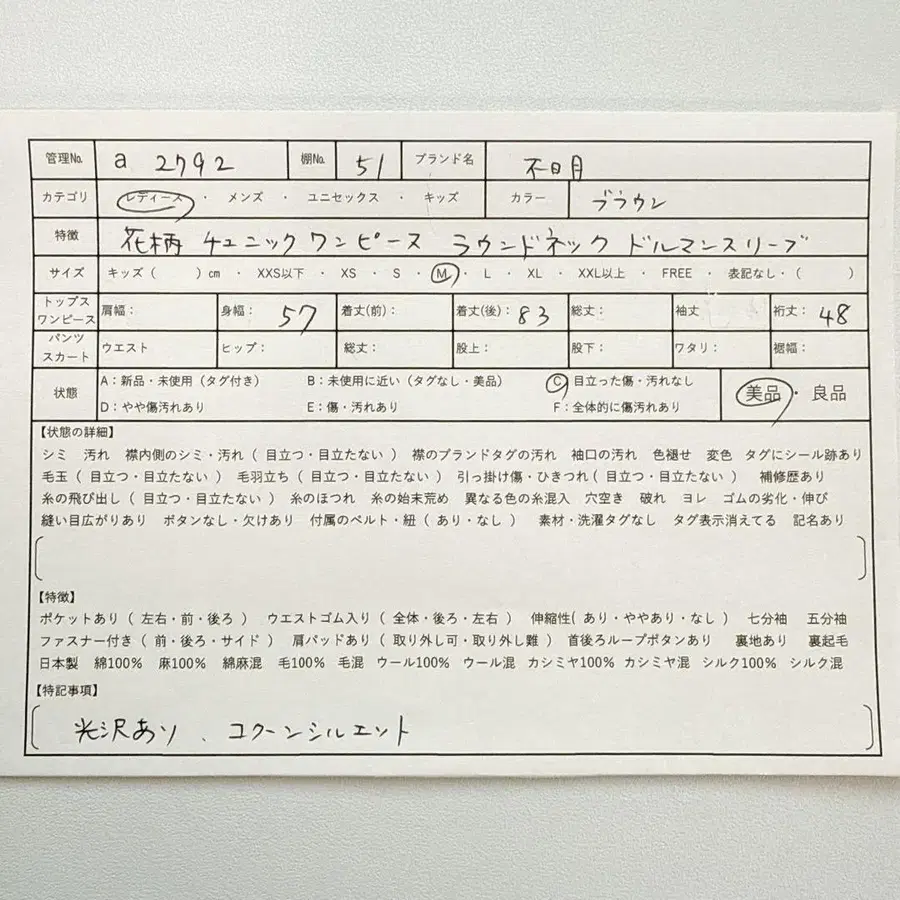 管理No. a 2792 棚No. 51 ブランド名 不日月
カテゴリ レディース ・ メンズ ・ ユニセックス ・ キッズ カラー ブラウン
特徴 花柄 チュニックワンピース ラウンドネック ドルマンスリーブ
サイズ キッズ（ ）cm ・ XXS以下 ・ XS ・ S ・ M ・ L ・ XL ・ XXL以上 ・ FREE ・ 表記なし・（ ）
トップス ワンピース 肩幅： 身幅： 57 着丈(前)： 着丈(後)： 83 総丈： 袖丈 裄丈： 48
パンツ スカート ウエスト ヒップ： 総丈： 股上： 股下： ワタリ： 裾幅：
状態 A：新品・未使用（タグ付き） B：未使用に近い（タグなし・美品） C 目立った傷・汚れなし 美品 ・ 良品
D：やや傷汚れあり E：傷・汚れあり F：全体的に傷汚れあり
【状態の詳細】
シミ 汚れ 襟内側のシミ・汚れ（ 目立つ・目立たない ） 襟のブランドタグの汚れ 袖口の汚れ 色褪せ 変色 タグにシール跡あり
毛玉（ 目立つ・目立たない ） 毛羽立ち（ 目立つ・目立たない ） 引っ掛け傷・ひきつれ（ 目立つ・目立たない ） 補修歴あり
糸の飛び出し（ 目立つ・目立たない ） 糸のほつれ 糸の始末荒め 異なる色の糸混入 穴空き 破れ ヨレ ゴムの劣化・伸び
縫い目広がりあり ボタンなし・欠けあり 付属のベルト・紐（ あり・なし ） 素材・洗濯タグなし タグ表示消えてる 記名あり
【特徴】
ポケットあり（ 左右・前・後ろ ） ウエストゴム入り（ 全体・後ろ・左右 ） 伸縮性( あり・ややあり・なし ) 七分袖 五分袖
ファスナー付き（ 前・後ろ・サイド ） 肩パッドあり（ 取り外し可・取り外し難 ） 首後ろループボタンあり 裏地あり 裏起毛
日本製 綿100% 麻100% 綿麻混 毛100% 毛混 ウール100% ウール混 カシミヤ100% カシミヤ混 シルク100% シルク混
【特記事項】
光沢あり、コクーンシルエット